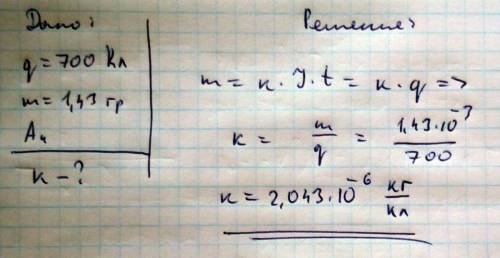 Дано:
q = 700 Кл
m = 1,43 гр
Au
к - ?
Решение:
m = к · I · t = к · q =>
к = m/q = 1,43·10⁻³/700
к = 2,043·10⁻⁶ кг/кл